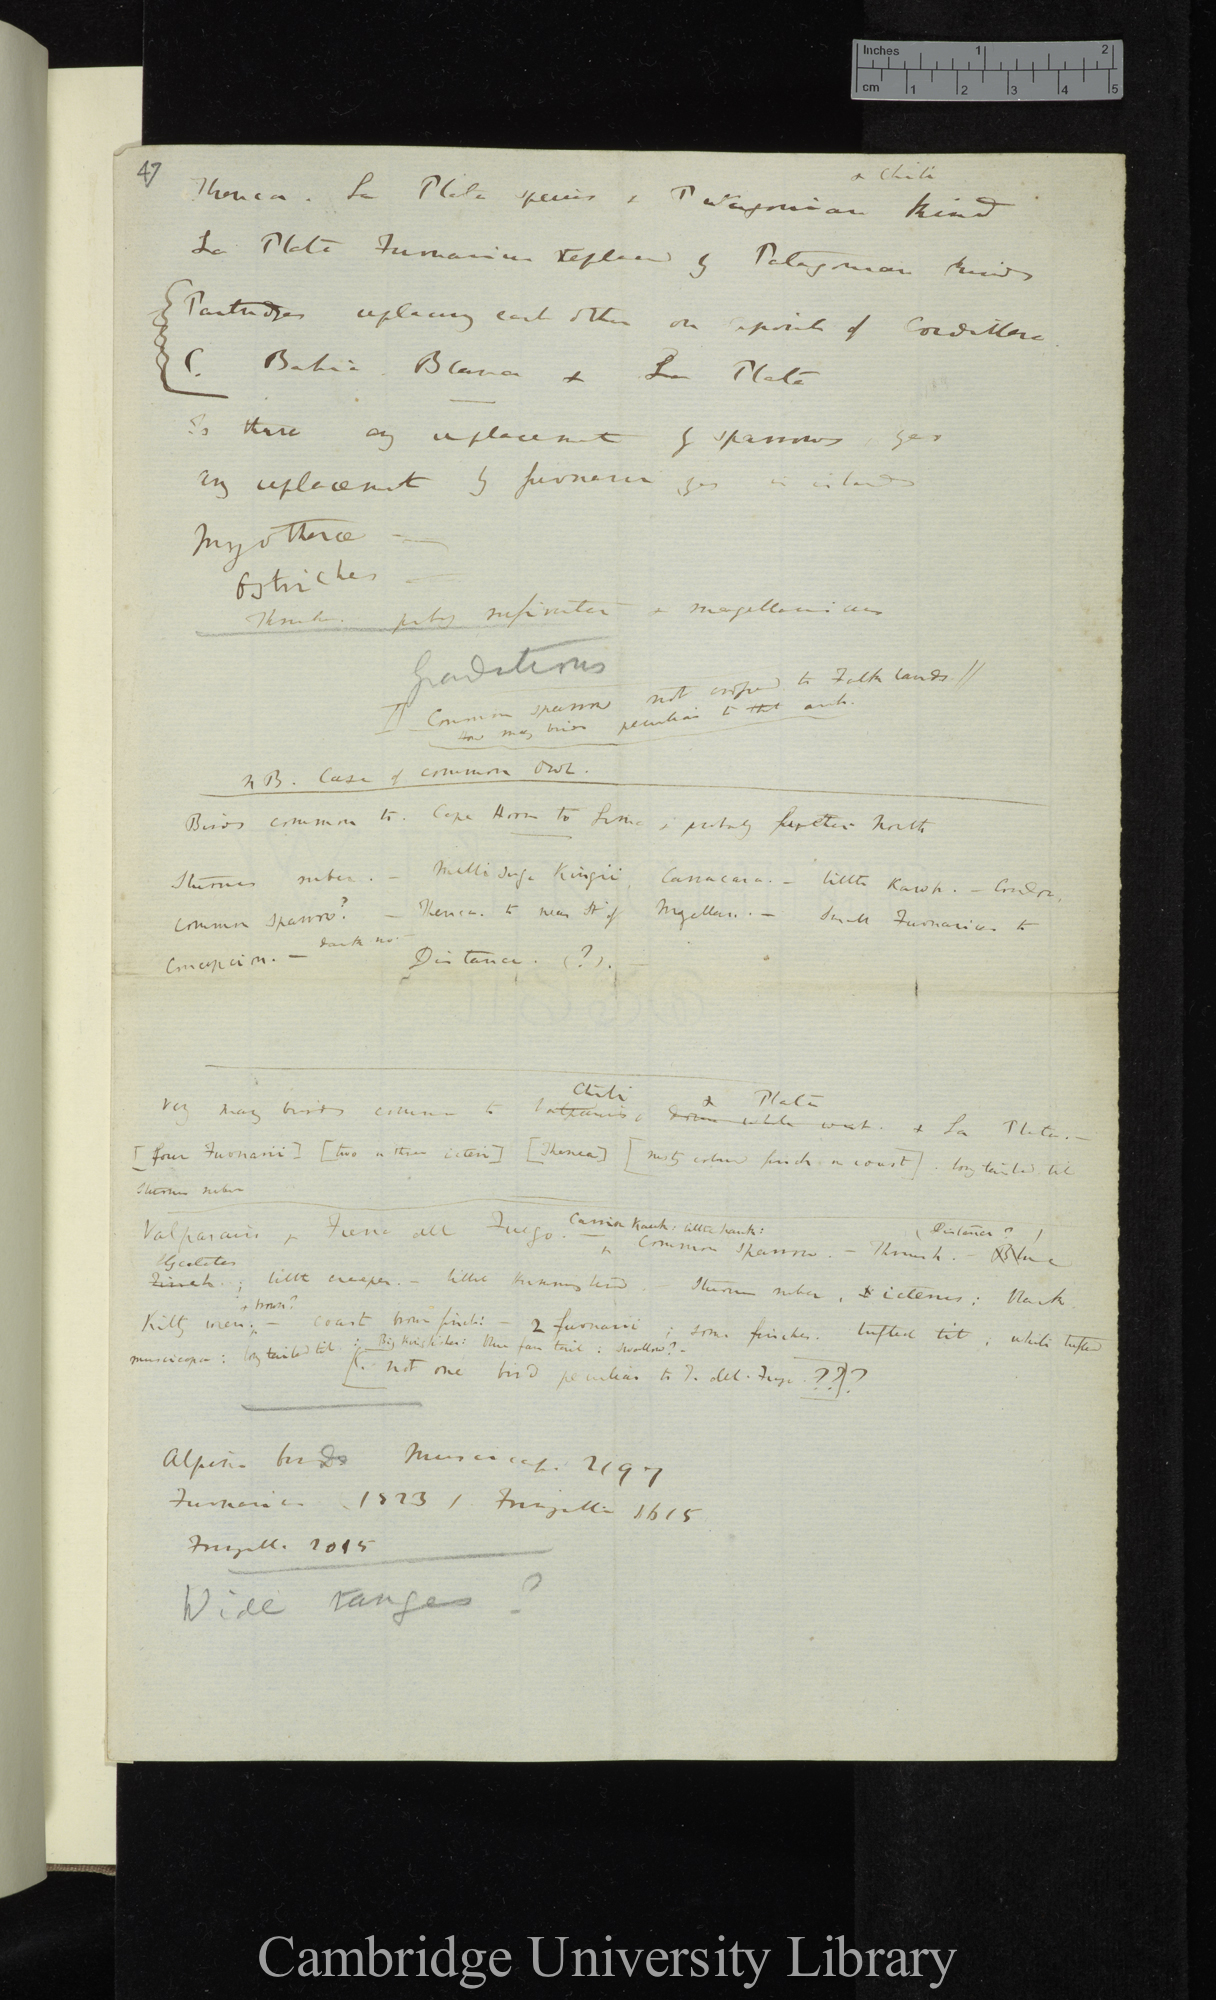 Inches 1 2
cm 1 2 3 4 5
47
& Chili
Thenca. La Plata species & Patagonian kind
La Plata Furnarius replaced by Patagonian kinds
Partridges replacing each other on points of Cordillera.
Bahia Blanca & La Plata
Is there any replacement of sparrows yes
any replacement of furnarii yes in islands
Myothera —
Ostriches —
Thrush. &  magellanicus
Gradations
Common sparrow not  to Falklands //
How many birds peculiar to that arch.
N B. Case of common Owl.
Birds common to. Cape Horn to Lima & probably further North
Sturnus ruber. — Mellisuga Kingii. Carracara. — little Hawk. — Condor.
Common Sparrow? — Thenca. to near St of Magellan. — Small Furnarius to
dark no. —
Concepcion. — Distance. (?). —
Chili & Plata
Very many birds common to Valparaiso & & La Plata. —
[four Furnarii] [two or three icteri] [Thenca] [rusty colour finch on coast]. long tailed tit
Sturnus ruber
Valparaiso & Tierra del Fuego. — Carrion Hawk: little hawk:
(Distance?)
& Common Sparrow. — Thrush. — Blue
Finch; little creeper. — little Humming bird — Sturnus ruber, & icterus; Black
& brown?
Kitty wren; — coast brown finch: — 2 furnarii; some finches. tufted tit; white tufted
muscicapa: long tailed tit: Big Kingfisher: fan tail: Swallow? —
[not one bird peculiar to T. del. Fuego. ??]?
Alpine birds Muscicap. 2197
Furnarius (1823) Fringilla 1615
Fringilla 2015
Wide ranges?
Cambridge University Library